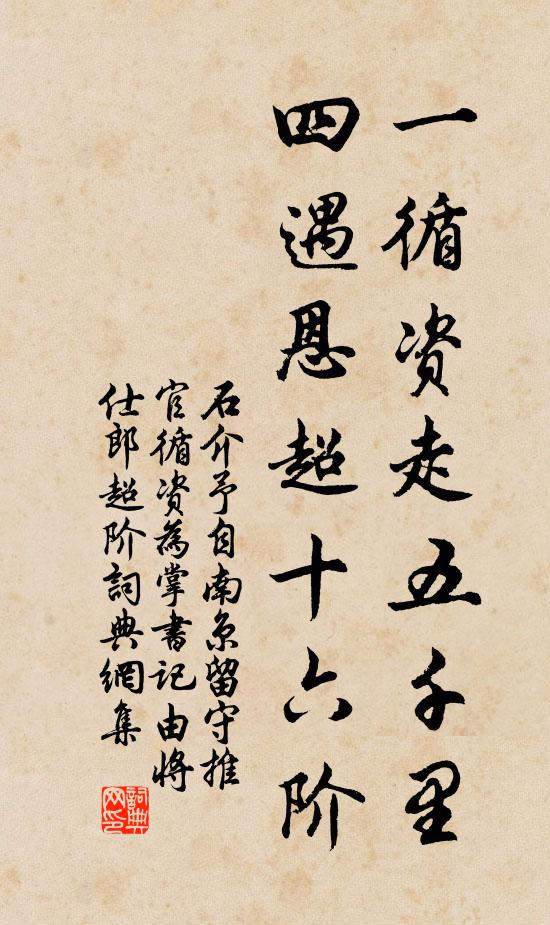 一循资走五千里
四遇恩超十六阶
石介予自南京留守推
官循资為掌書记由将
仕郎超阶詞典網集
詞典
网印